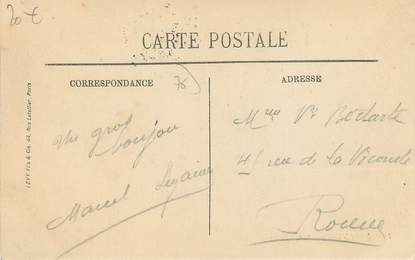 20 €
CARTE POSTALE
CORRESPONDANCE
76
ADRESSE
un gros
bonjour
Marcel
Mme Vve
41 rue de la Vicomté
Rouen
LÉVY Fils & Cie, 44, Rue Letellier, Paris